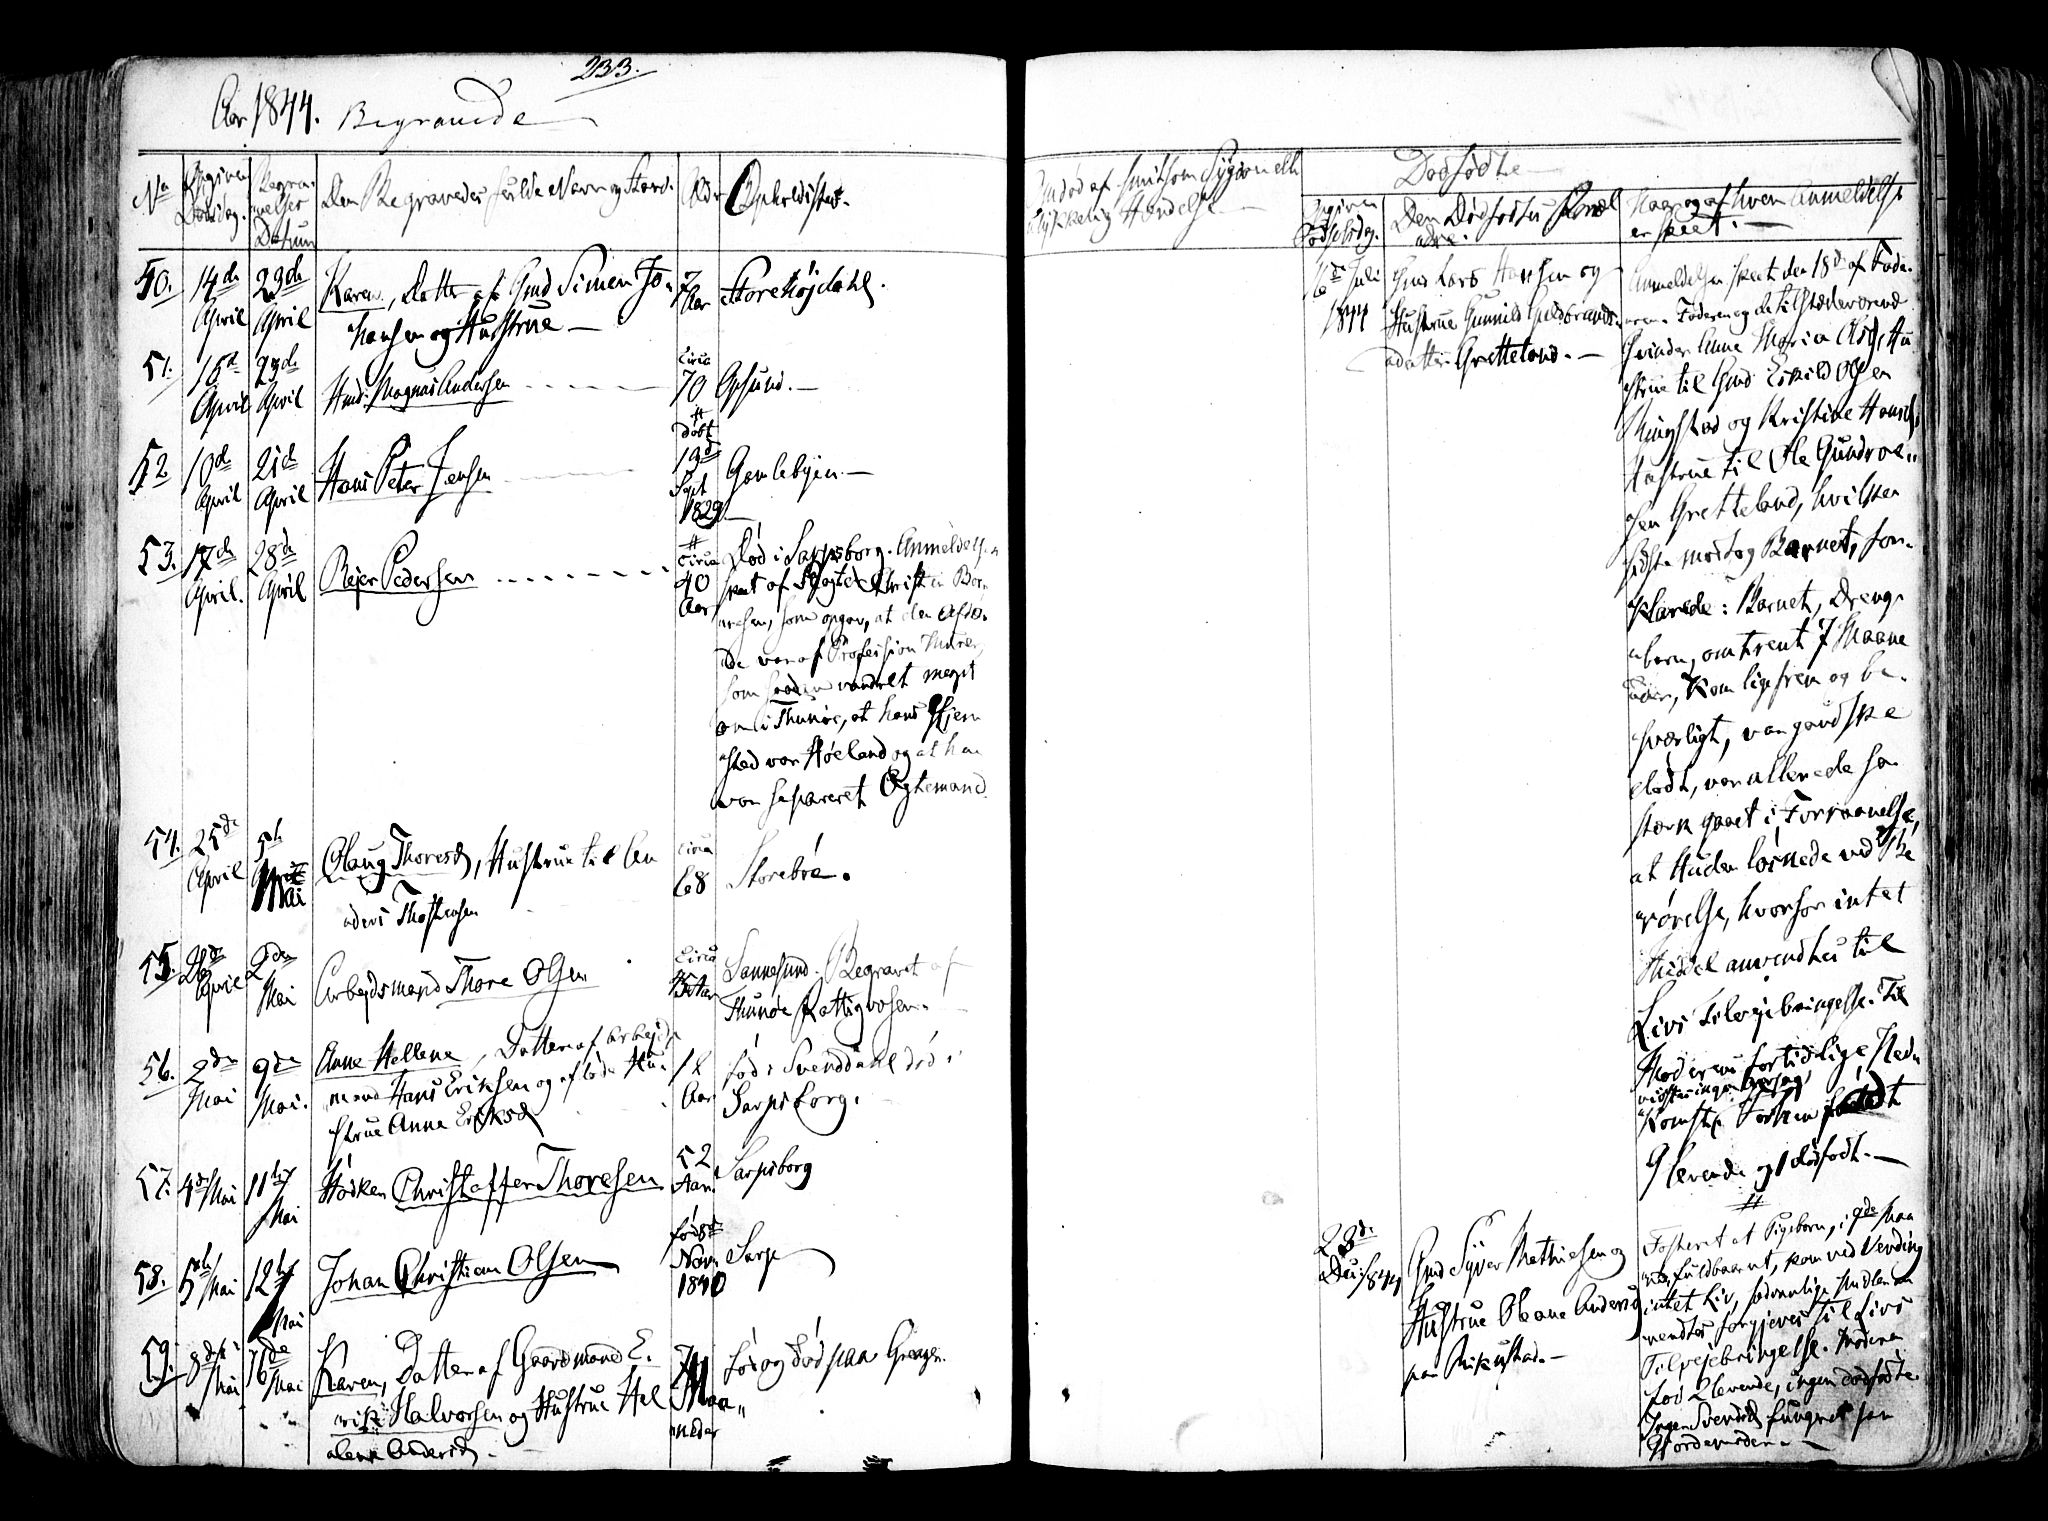 233.
Aar 1844. Begravede
No
Opgiven Dødsdag.
Begravelses Datum
Den Begravedes fulde Navn og Stand.
Alder
Opholdssted.
50. 14de April 23de April Karen, Datter af Gmd Simen Jo-
hansen og Hustrue —
7 Aar
Storehøjdahl.
51. 16de April 23de April Hmd: Magnus Andersen
Circa 70
Opsund. —
52 10de April 21de April Hans Peter Jensen
døbt 19de Sept 1829
Gamlebyen. —
53. 17de April. 28de April Rejer Pedersen
Circa 40 Aar
Død i Sarpsborg. Anmeldelsen
skeet af Christen
som opgav, at den Afdø-
de var af Profession Murer,
som havde vandret meget
om i Thunøe, at hans Hjem-
sted var Høeland og at han
var separeret Ægtemand.
54. 25de April 5te Mai Olaug Thoresd, Hustrue til An
ders Thostensen
Circa 68
Storebøe.
55. 26de April 2den Mai Arbejdsmand Thore Olsen
Circa Aar
Sannesund. Begravet af
Thunøe Fattigvæsen.
56. 2den Mai 9de Mai. Anne Hellene, Datter af Arbejds
mand Hans Eriksen og afdøde Hu-
strue Anne Eriksd
Aar
født i Svenddahl død i
Sarpsborg.
57. 4de Mai 11te Mai Høsken Christoffer Thoresen
52 Aar
Sarpsborg
58. 5te Mai 12te Mai Johan Christian Olsen
fød 8de Novr 1840
Sarpe
59. 8de Mai 16de Mai Karen, Datter af Gaardmand E.
rik Halvorsen og Hustrue Hel
ene Andersd. —
7 Maa-
neder
født og død paa Greager.
Om død af smitsom Sygdom elle
ulykkelig Hændelse. —
Dødfødte
Opgiven Fødselsdag.
Den Dødfødtes Foræl
dre.
Naar og af hvem Anmeldelse
er skeet. —
16de Juli 1844
Gmd Lars Hansen og
Hustrue Gunild Guldbrands-
datter Gretteland. —
Anmeldelsen skeet den 18de af Fade-
ren. Faderen og de tilstædeværende
Qvinder Anne Maria Olsd, Hu
strue til Gmd Eskild Olsen
Ringstad og Kristine Hansd,
Hustrue til Ole Gundro-
sen Gretteland, hvilken
sidste modtog Barnet, for-
klarede: Barnet, Drenge
barn, omtrent 7 Maane
der, kom ligefrem og be-
sværligt, var gandske
dødt, var allerede saa
stærk gaaet i Forraadnelse,
at Huden løsnede ved Be
rørelse, hvorfor intet
Middel anvendtes til
Livs Tilvejebringelse. Til
Moderens fortidlige Ned
komst Moderen født
9 levende og 1 dødfødt. —
23de Dec: 1844
Gmd Syver Mathiesen og
Hustrue Oleane Andersd
paa Rikustad. —
Fosteret et Pigebarn, i 9de Maa
ned, fuldbaaret, kom ved Vending
intet Liv, sædvanlige Midler an
vendtes forgjeves til Livs
Tilvejebringelse. Moderen
fød 2 levende, ingen dødfødte.
Inger Svendsd fungeret som
Gjordemoder. —